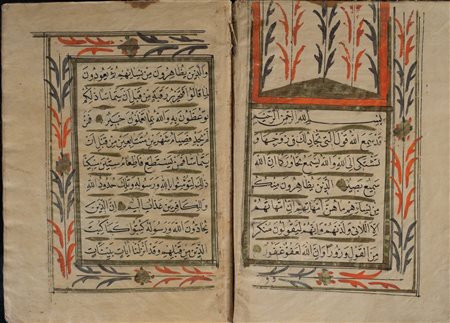 بسم الله الرحمن الرحيم
قد سمع الله قول التي تجادلك في زوجها و
تشتكي الى الله والله يسمع تحاوركما ان الله
سميع بصير الذين يظاهرون منكم
من نسائهم ما هن امهاتهم ان امهاتهم
الا اللائي ولدنهم وانهم ليقولون منكرا
من القول وزورا وان الله لعفو غفور
والذين يظاهرون من نسائهم ثم يعودون
لما قالوا فتحرير رقبة من قبل ان يتماسا ذلكم
توعظون به والله بما تعملون خبير فمن
لم يجد فصيام شهرين متتابعين من قبل ان
يتماسا فمن لم يستطع فاطعام ستين مسكينا
ذلك لتؤمنوا بالله ورسوله وتلك حدود الله
وللكافرين عذاب اليم ان الذين
يحادون الله ورسوله كبتوا كما كبت
الذين من قبلهم وقد انزلنا ايات بينات